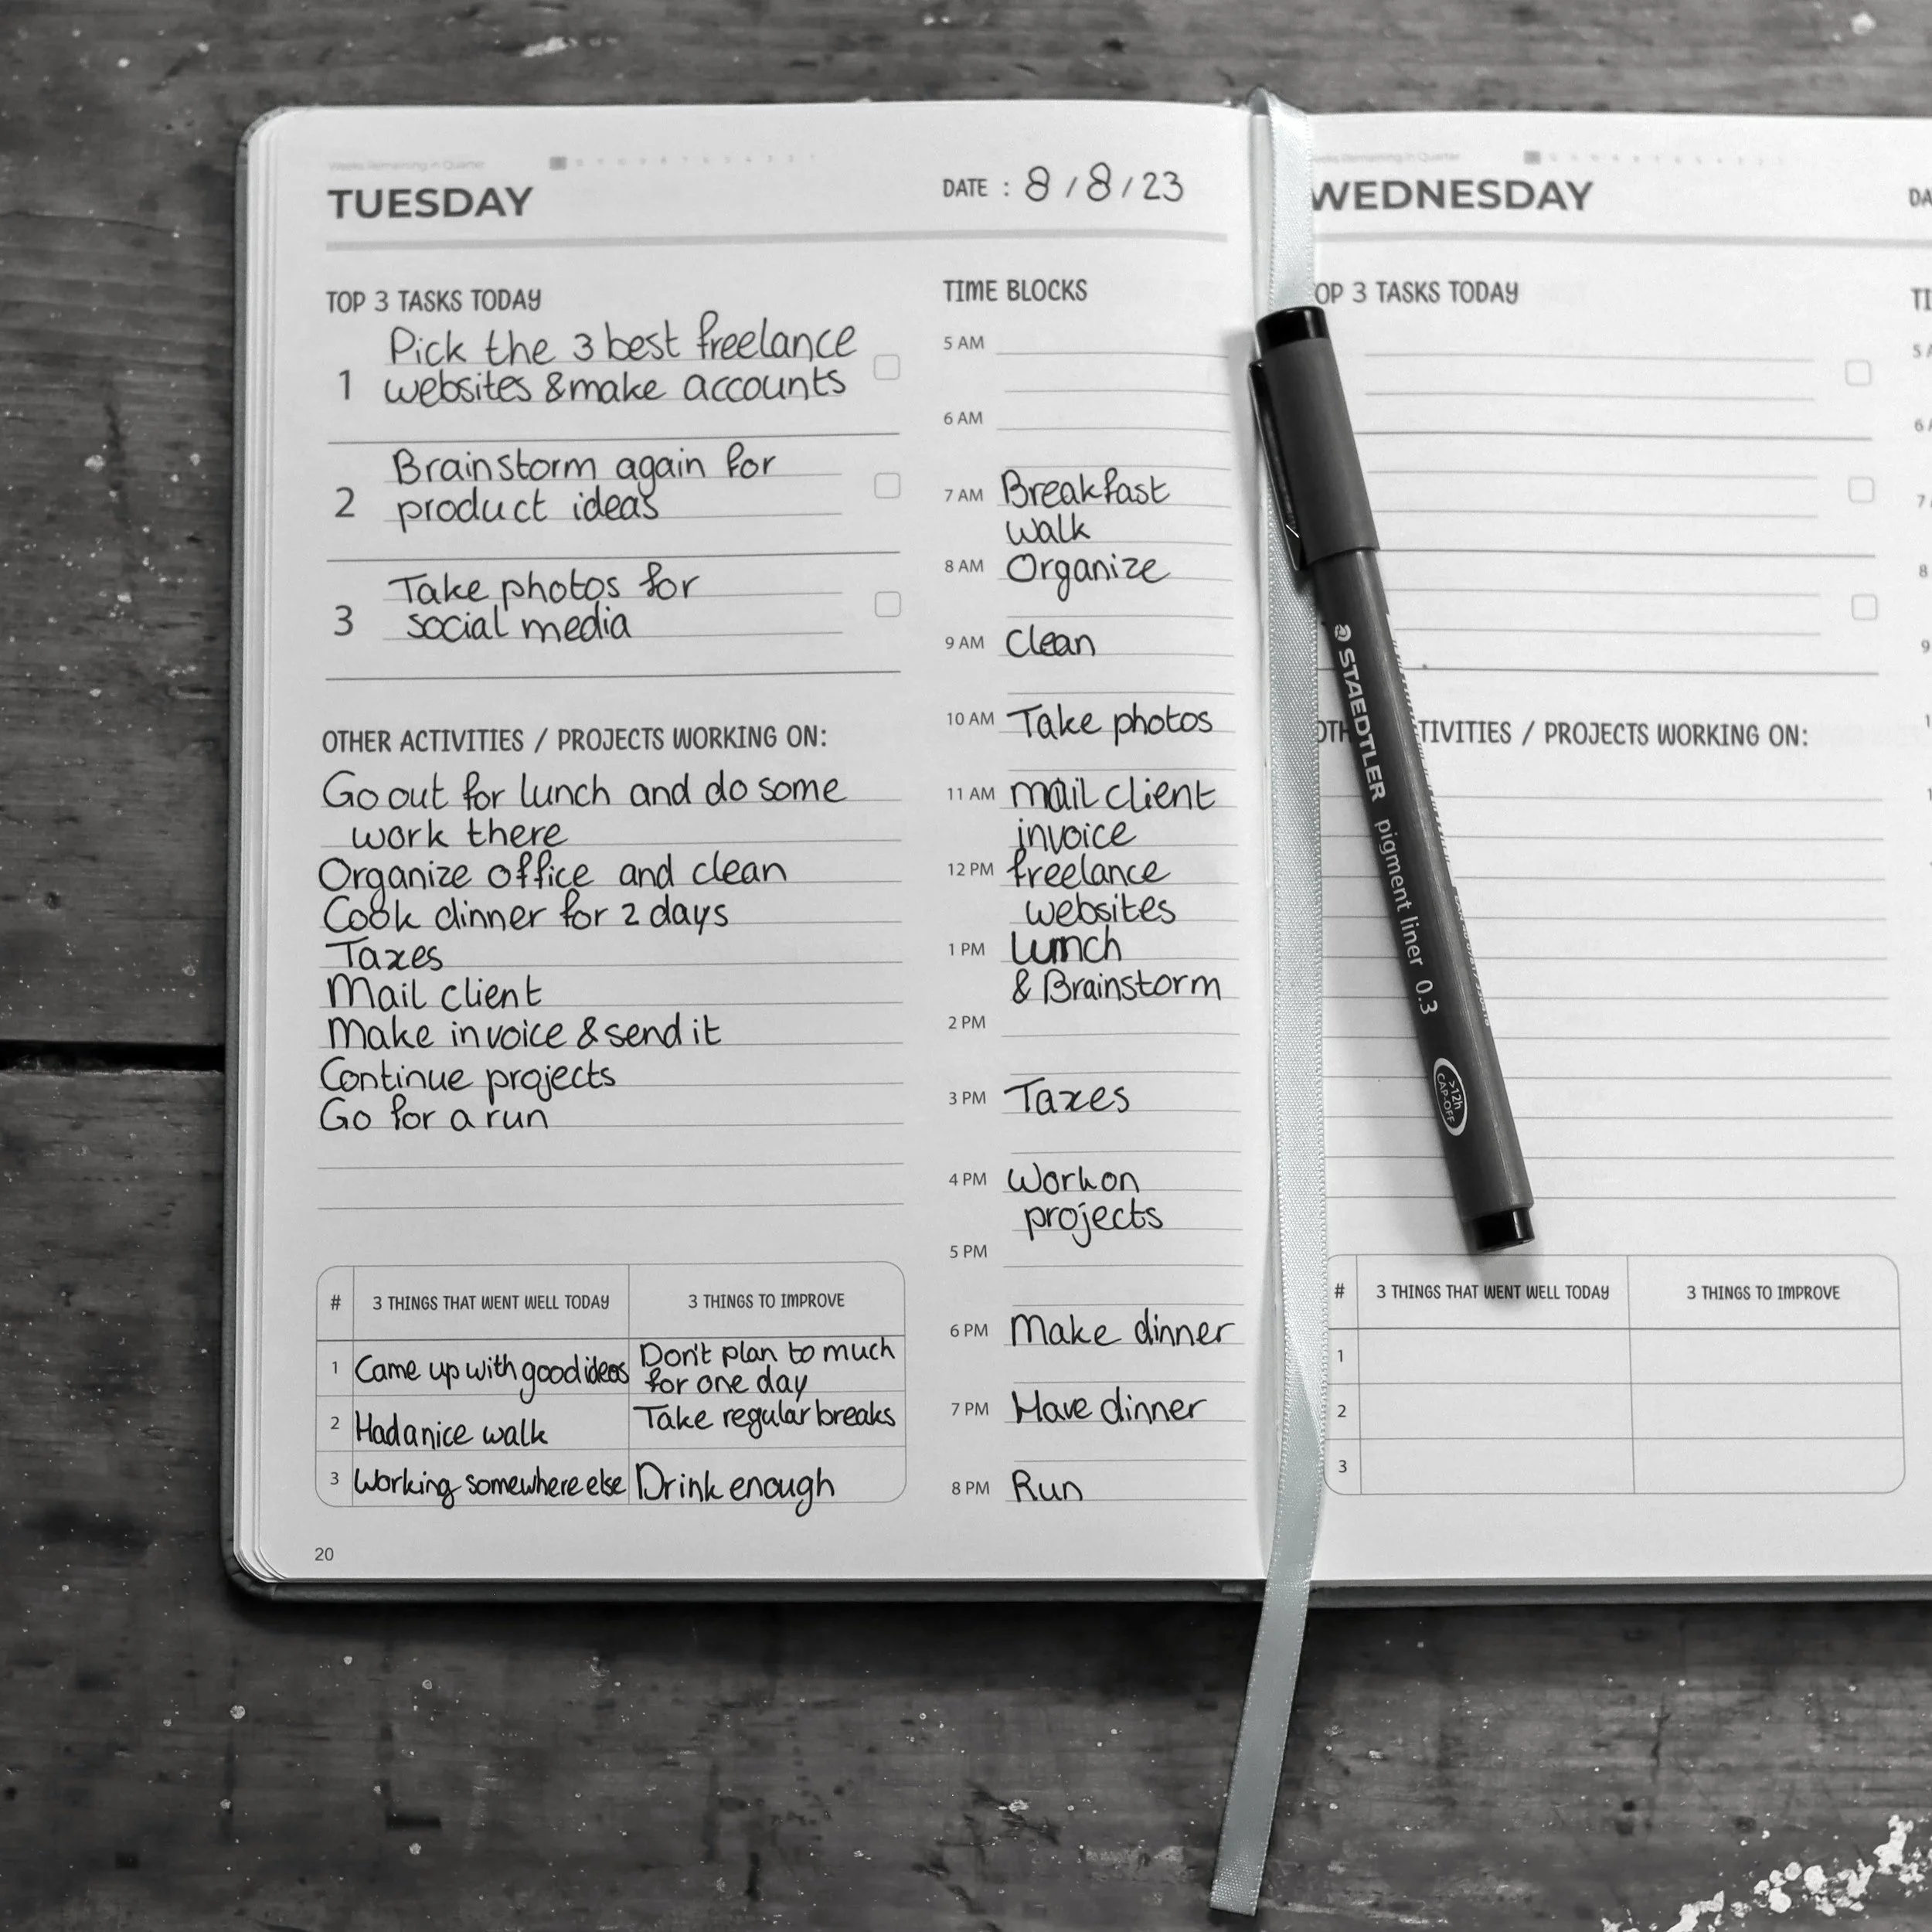 Weeks Remaining in Quarter
TUESDAY
DATE : 8 / 8 / 23
TOP 3 TASKS TODAY
1 Pick the 3 best freelance
websites & make accounts
2 Brainstorm again for
product ideas
3 Take photos for
social media
OTHER ACTIVITIES / PROJECTS WORKING ON:
Go out for lunch and do some
work there
Organize office and clean
Cook dinner for 2 days
Taxes
Mail client
Make invoice & send it
Continue projects
Go for a run
# 3 THINGS THAT WENT WELL TODAY 3 THINGS TO IMPROVE
1 Came up with good ideas Don't plan to much
for one day
2 Had a nice walk Take regular breaks
3 Working somewhere else Drink enough
20
TIME BLOCKS
5 AM
6 AM
7 AM Breakfast
walk
8 AM Organize
9 AM Clean
10 AM Take photos
11 AM mail client
invoice
12 PM freelance
websites
1 PM Lunch
& Brainstorm
2 PM
3 PM Taxes
4 PM Work on
projects
5 PM
6 PM Make dinner
7 PM Have dinner
8 PM Run
STAEDTLER pigment liner 0.3
>12h
CAP-OFF
Weeks Remaining in Quarter
WEDNESDAY
DA
OP 3 TASKS TODAY
TI
5 A
6 A
7
8
9
1
1
OTH TIVITIES / PROJECTS WORKING ON:
# 3 THINGS THAT WENT WELL TODAY 3 THINGS TO IMPROVE
1
2
3